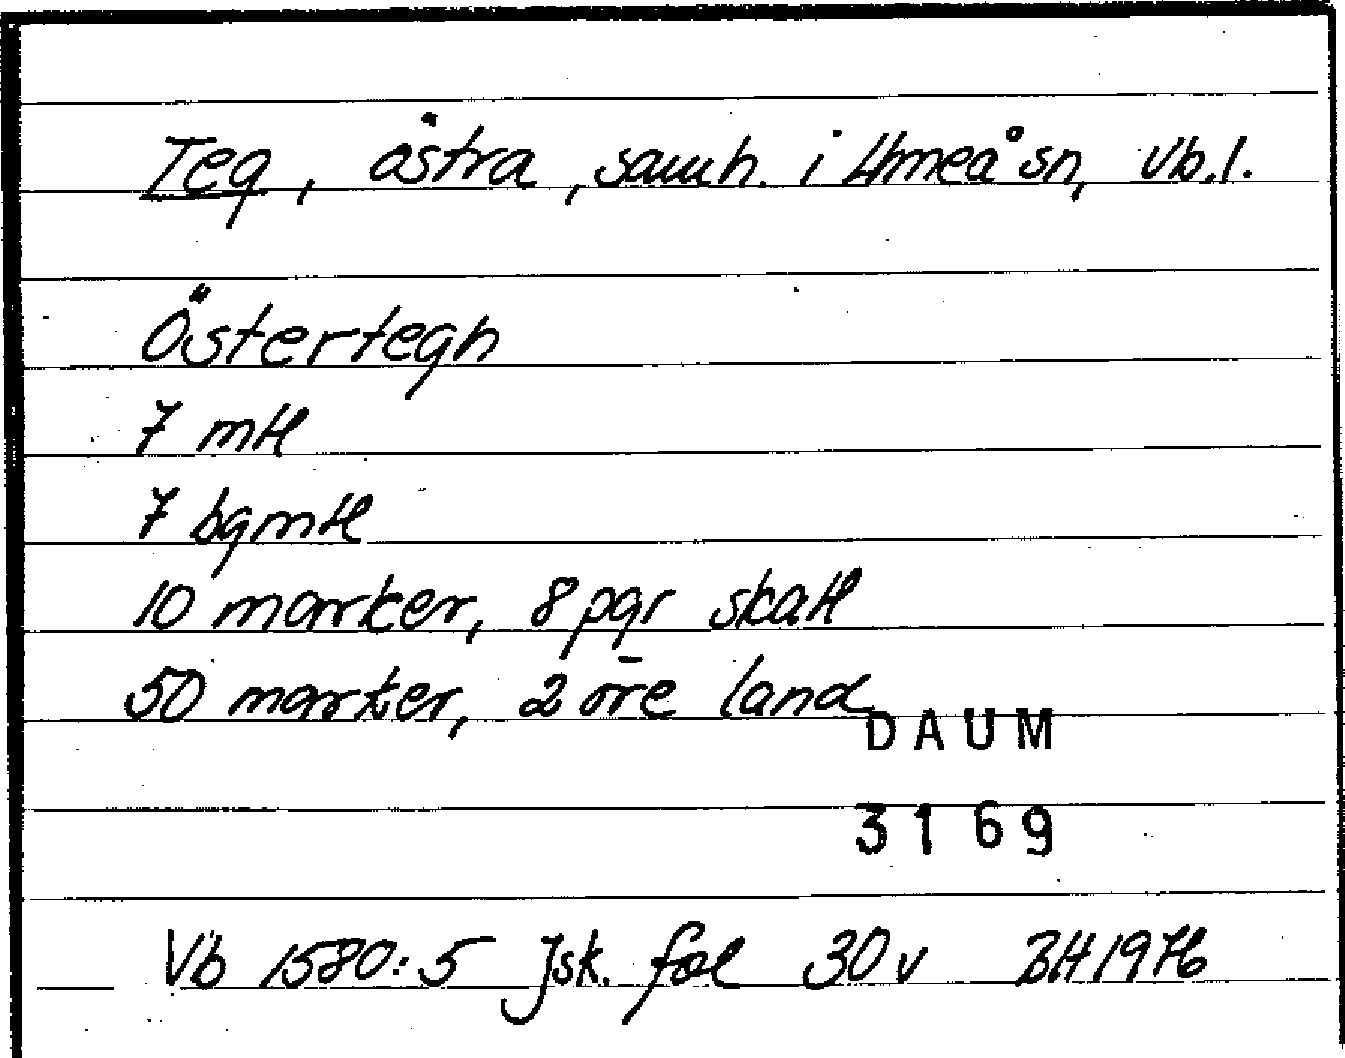 Teg, östra, samh. i Umeå sn, Vb.l.
Östertegh
7 mtl
7 bgmtl
10 marker, 8 pgr skatt
50 marker, 2 öre land
DAUM
3169
Vb 1580:5 Jsk. fol 30 v BH 1976